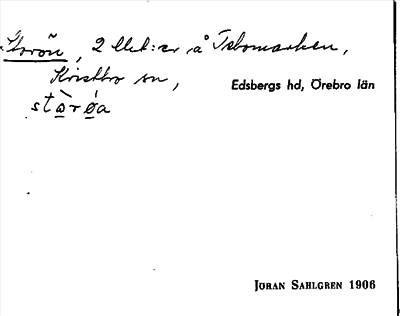 Storön, 2 lht:er å Tabomarken,
Kvistbro sn,
Edsbergs hd, Örebro län
stàrǿa
JÖRAN SAHLGREN 1906